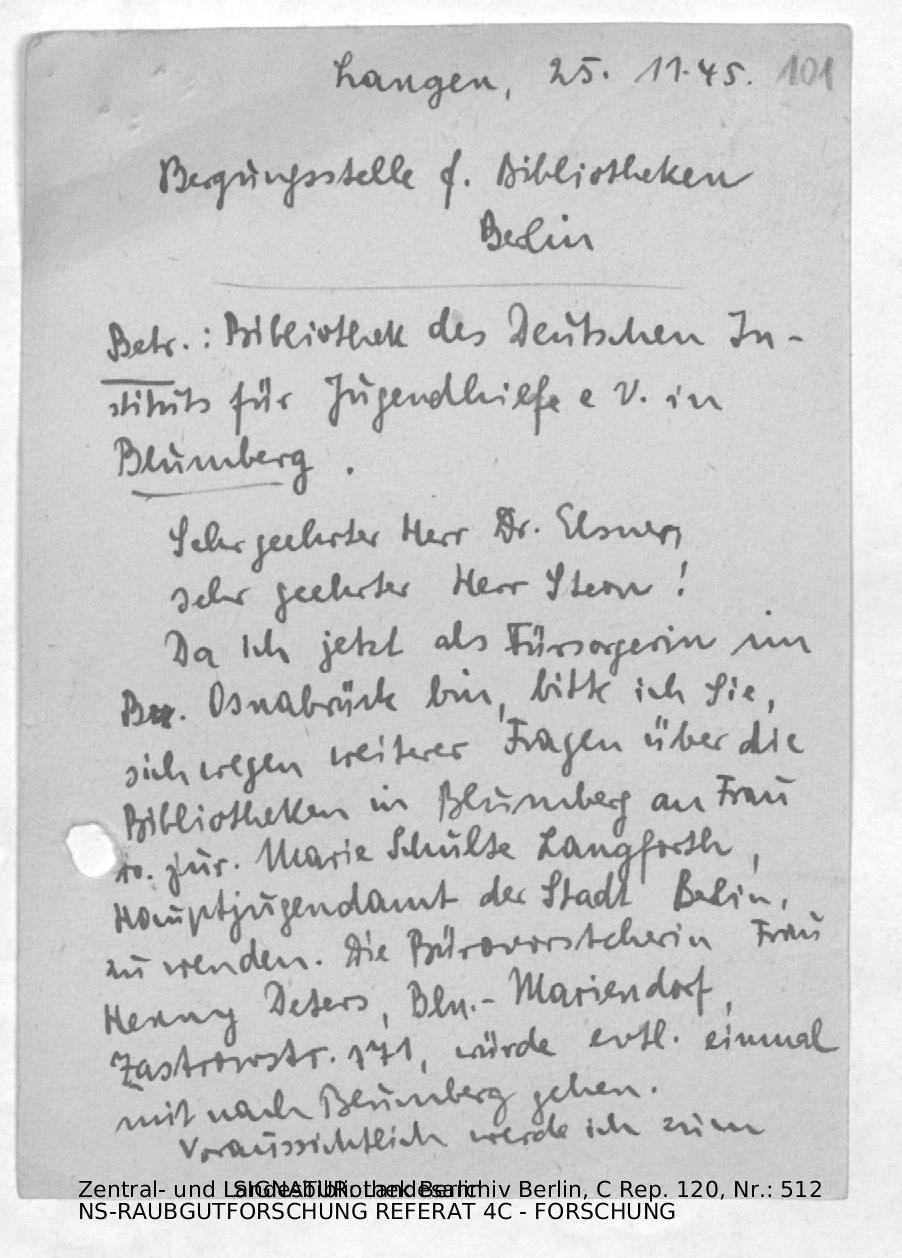 Langen, 25. 11. 45. 101
Bergungsstelle f. Bibliotheken
Berlin
Betr.: Bibliothek des Deutschen In-
stituts für Jugendhilfe e V. in
Blumberg.
Sehr geehrter Herr Dr. Elsner,
sehr geehrter Herr Stern!
Da ich jetzt als Fürsorgerin im
Bez. Osnabrück bin, bitte ich Sie,
sich wegen weiterer Fragen über die
Bibliotheken in Blumberg an Frau
Dr. jur. Marie Schulte Langforth,
Hauptjugendamt der Stadt Berlin,
zu wenden. Die Bürovorsteherin Frau
Henny Deters, Bln.-Mariendorf,
Zastrowstr. 171, würde evtl. einmal
mit nach Blumberg gehen.
Voraussichtlich werde ich zum
Zentral- und Landesbibliothek Berlin
SIGNATUR: Landesarchiv Berlin, C Rep. 120, Nr.: 512
NS-RAUBGUTFORSCHUNG REFERAT 4C - FORSCHUNG